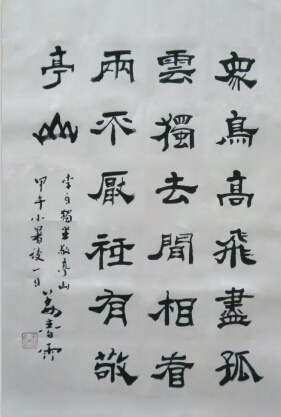 眾鳥高飛盡孤
雲獨去閒相看
兩不厭祗有敬
亭山
李白獨坐敬亭山
甲午小暑後一日